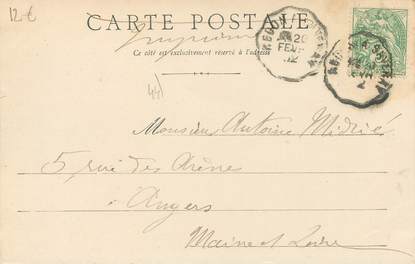 12 €
CARTE POSTALE
Ce côté est exclusivement réservé à l'adresse
20
FEVR
02
44
Monsieur Antoine
5 rue des Arènes
Angers
Maine et Loire